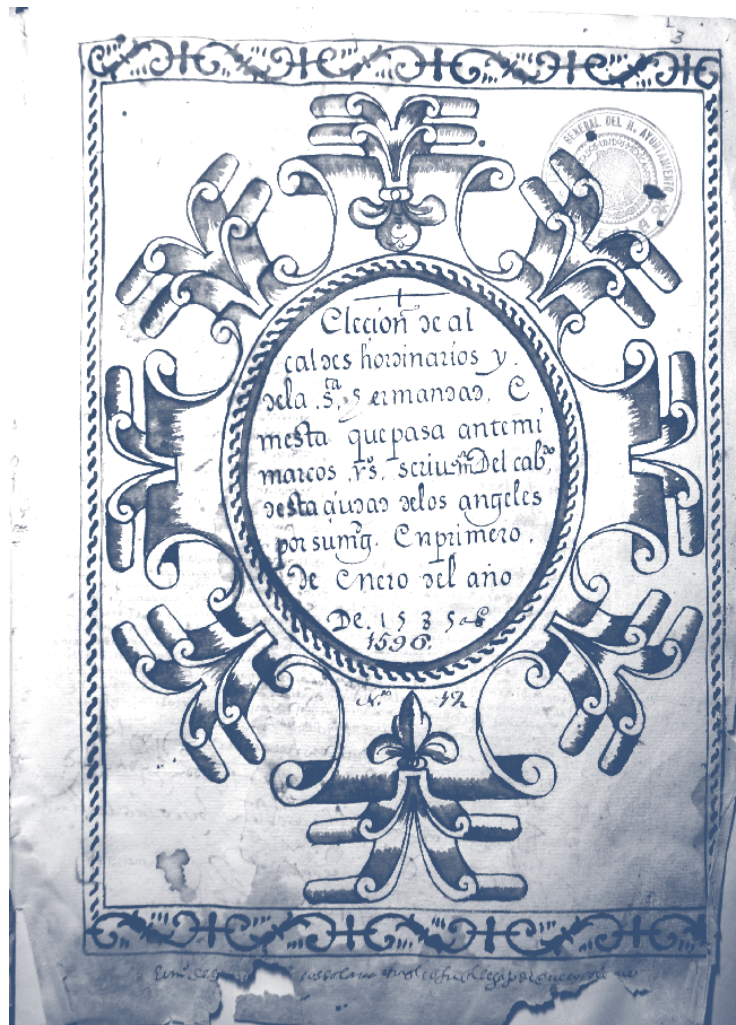 L
3
GENERAL DEL H. AYUNTAMIENTO
ESTADOS UNIDOS MEXICANOS
Elecion de al
caldes hordinarios y
dela s.ta hermandad. E
mesta que pasa antemi
marcos rs. scriu.no Del cab.do
desta ciudad delos angeles
por sumg. Enprimero.
de Enero del año
De. 1585 as
1596.
N.o 12